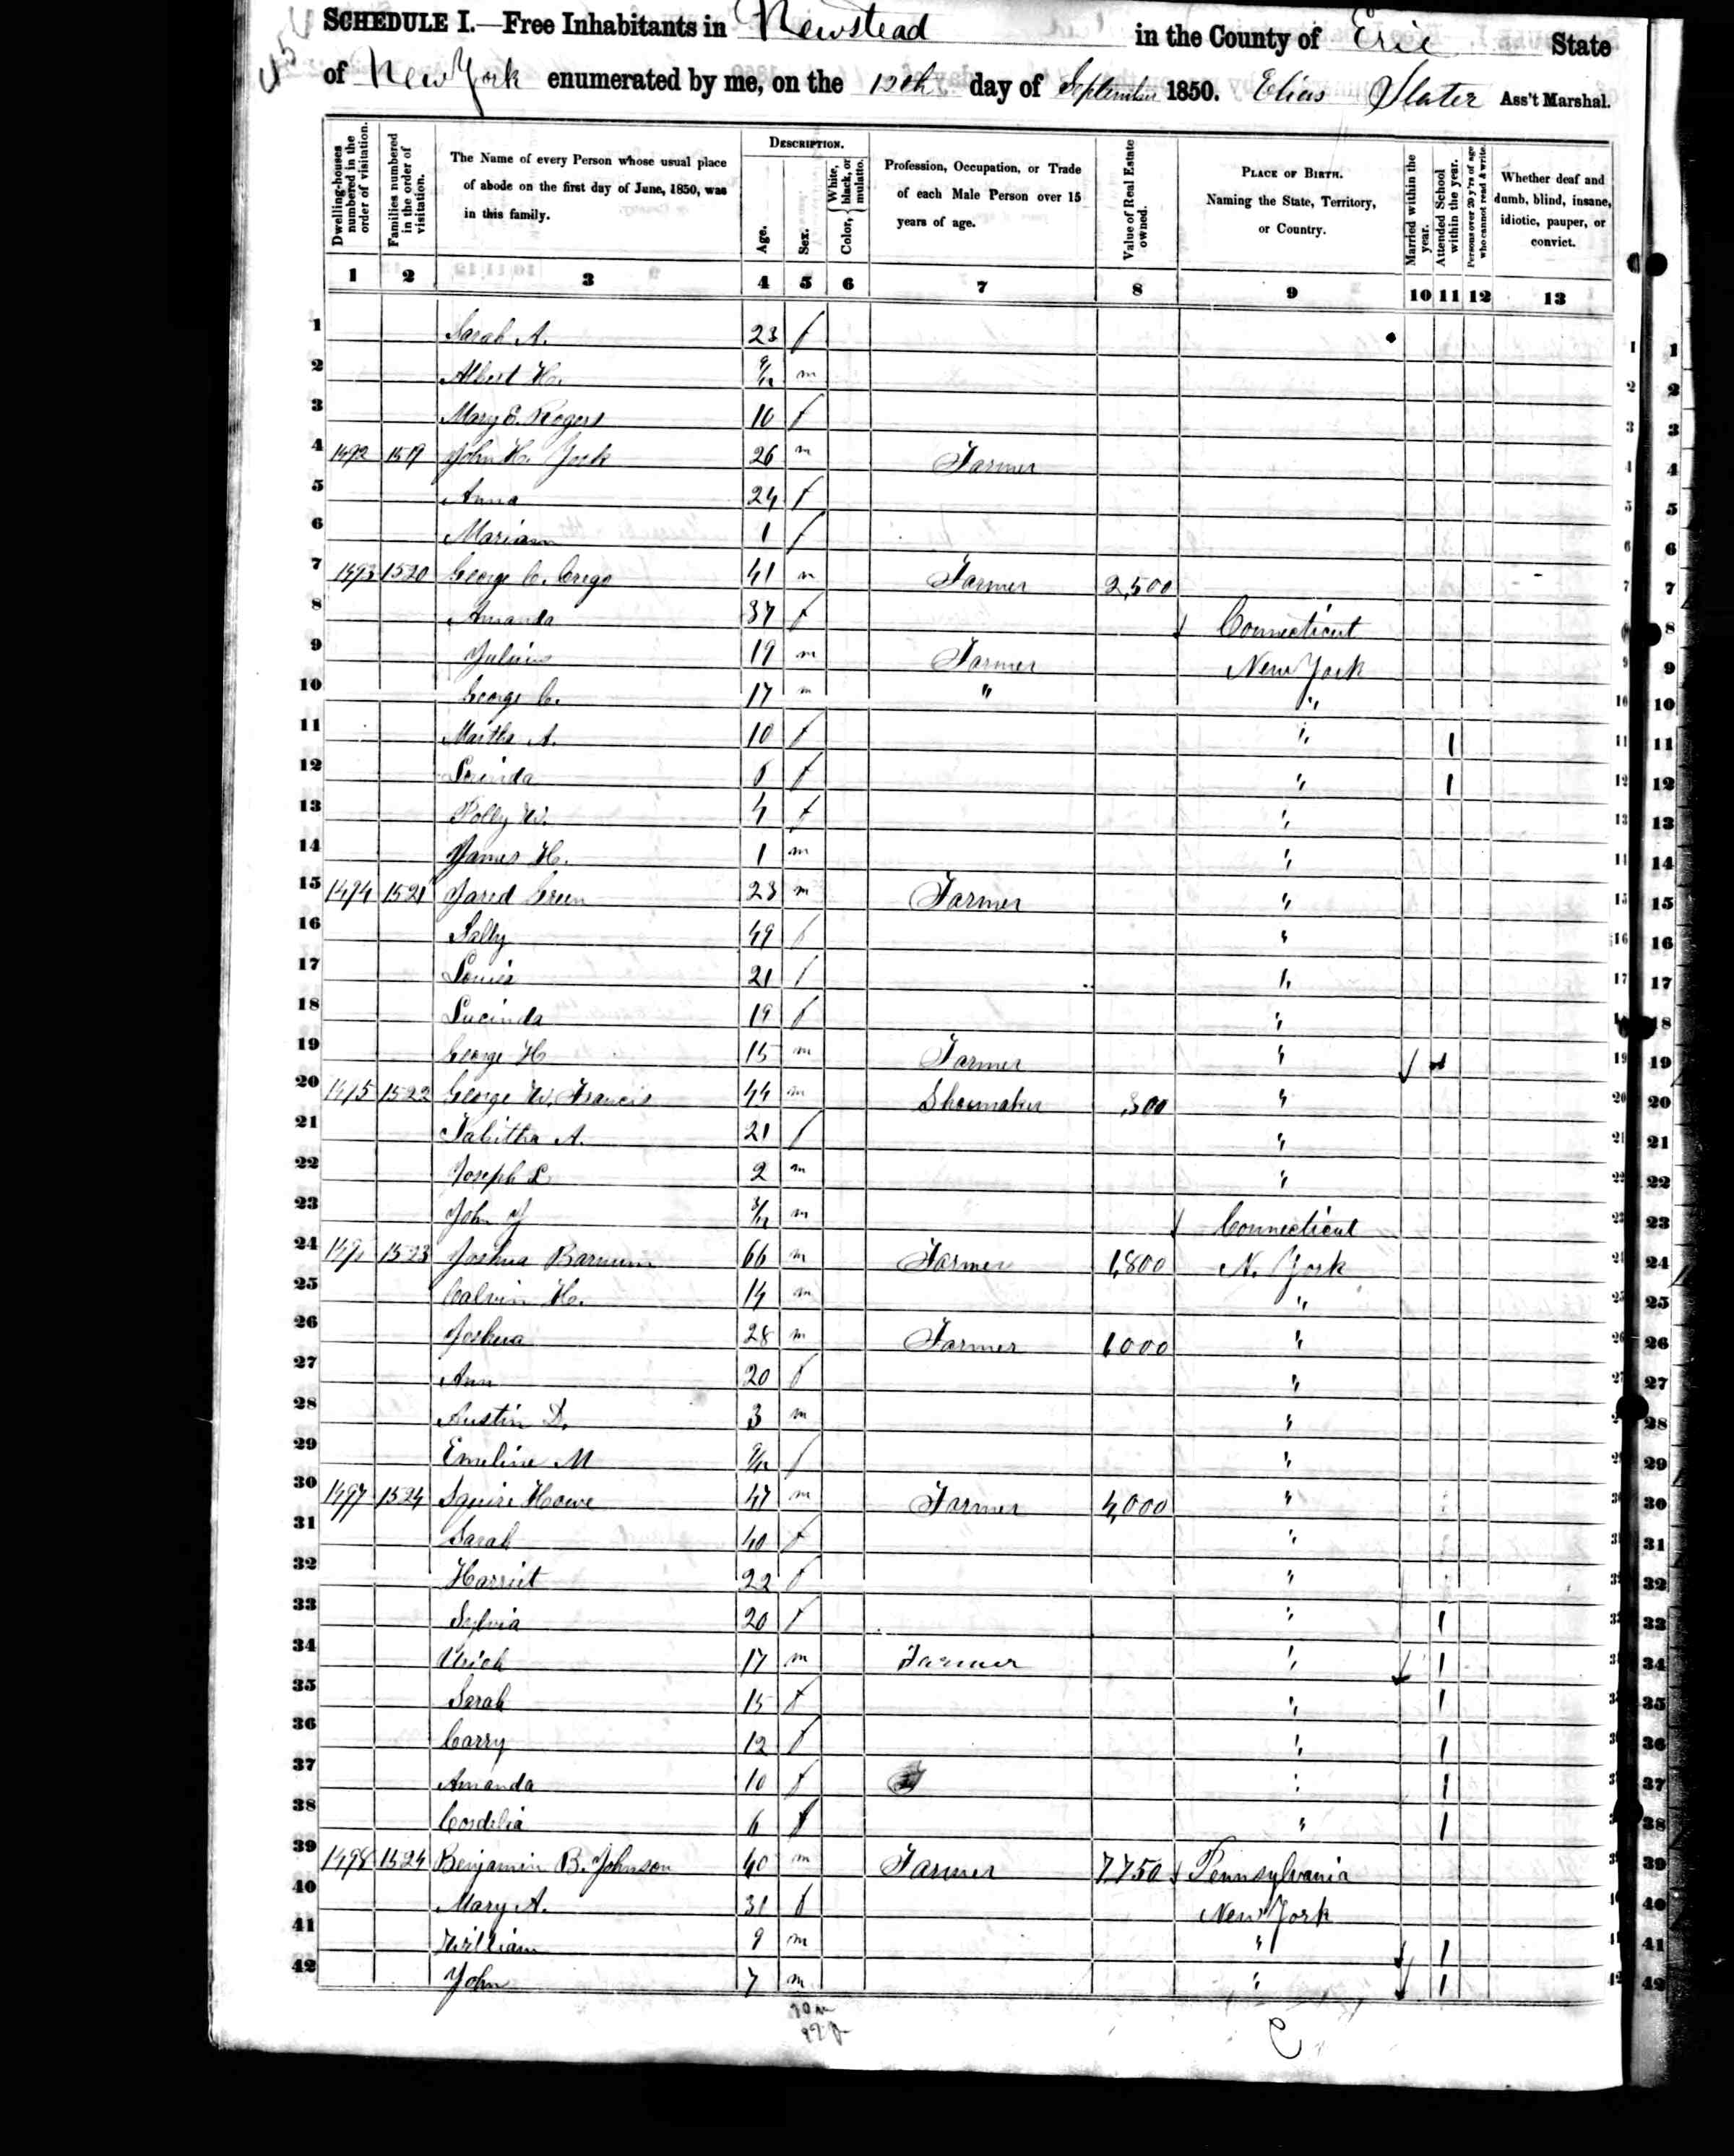 SCHEDULE I.—Free Inhabitants in Newstead in the County of Erie State
of New York enumerated by me, on the 12th day of September 1850. Elias Slater Ass't Marshal.
Dwelling-houses numbered in the order of visitation.
Families numbered in the order of visitation.
The Name of every Person whose usual place of abode on the first day of June, 1850, was in this family.
DESCRIPTION.
Age.
Sex.
Color, { White, black, or mulatto.
Profession, Occupation, or Trade of each Male Person over 15 years of age.
Value of Real Estate owned.
PLACE OF BIRTH. Naming the State, Territory, or Country.
Married within the year.
Attended School within the year.
Persons over 20 y'rs of age who cannot read & write.
Whether deaf and dumb, blind, insane, idiotic, pauper, or convict.
1 2 3 4 5 6 7 8 9 10 11 12 13
1 Sarah A. 23 f 1 1
2 Albert H. 9/12 m 2 2
3 Mary E. Rogers 10 f 3 3
4 1492 1519 John H. York 26 m Farmer 4 4
5 Anna 24 f 5 5
6 Mariam 1 f 6 6
7 1493 1520 George C. Crego 41 m Farmer 2,500 7 7
8 Amanda 37 f Connecticut 8
9 Julius 19 m Farmer New York 9 9
10 George C. 17 m " " 10 10
11 Martha A. 10 f " 1 11 11
12 Lorinda f " 1 12 12
13 Polly W. 4 f " 13 13
14 James H. 1 m " 14 14
15 1494 1521 Jared Green 23 m Farmer " 15 15
16 Sally 49 f " 16 16
17 Louisa 21 f " 17 17
18 Lucinda 19 f " 18
19 George H 15 m Farmer " 19 19
20 1495 1522 George W. Francis 44 m Shoemaker 300 " 20 20
21 Tabitha A. 21 f " 21 21
22 Joseph L 2 m " 22 22
23 John J 3/12 m Connecticut 23 23
24 1523 Joshua Barnum 66 m Farmer 1,800 N. York 24 24
25 Calvin H. 14 m " 25 25
26 Joshua 28 m Farmer 1000 " 26 26
27 Ann 20 f " 27 27
28 Austin D. 3 m " 28
29 Emeline M f " 29
30 1497 1524 Squire Howe 47 m Farmer 4,000 " 30
31 Sarah 40 f " 31
32 Harriet 22 f " 32
33 Sylvia 20 f " 1 33
34 Urich 17 m Farmer " 1 34
35 Sarah 15 f " 1 35
36 Carry 12 f " 1 36
37 Amanda 10 f " 1 37
38 Cordelia 6 f " 1 38
39 1498 1524 Benjamin B. Johnson 40 m Farmer 7750 Pennsylvania 39
40 Mary A. 31 f New York 40
41 William 9 m " 1 41
42 John 7 m " 1 42